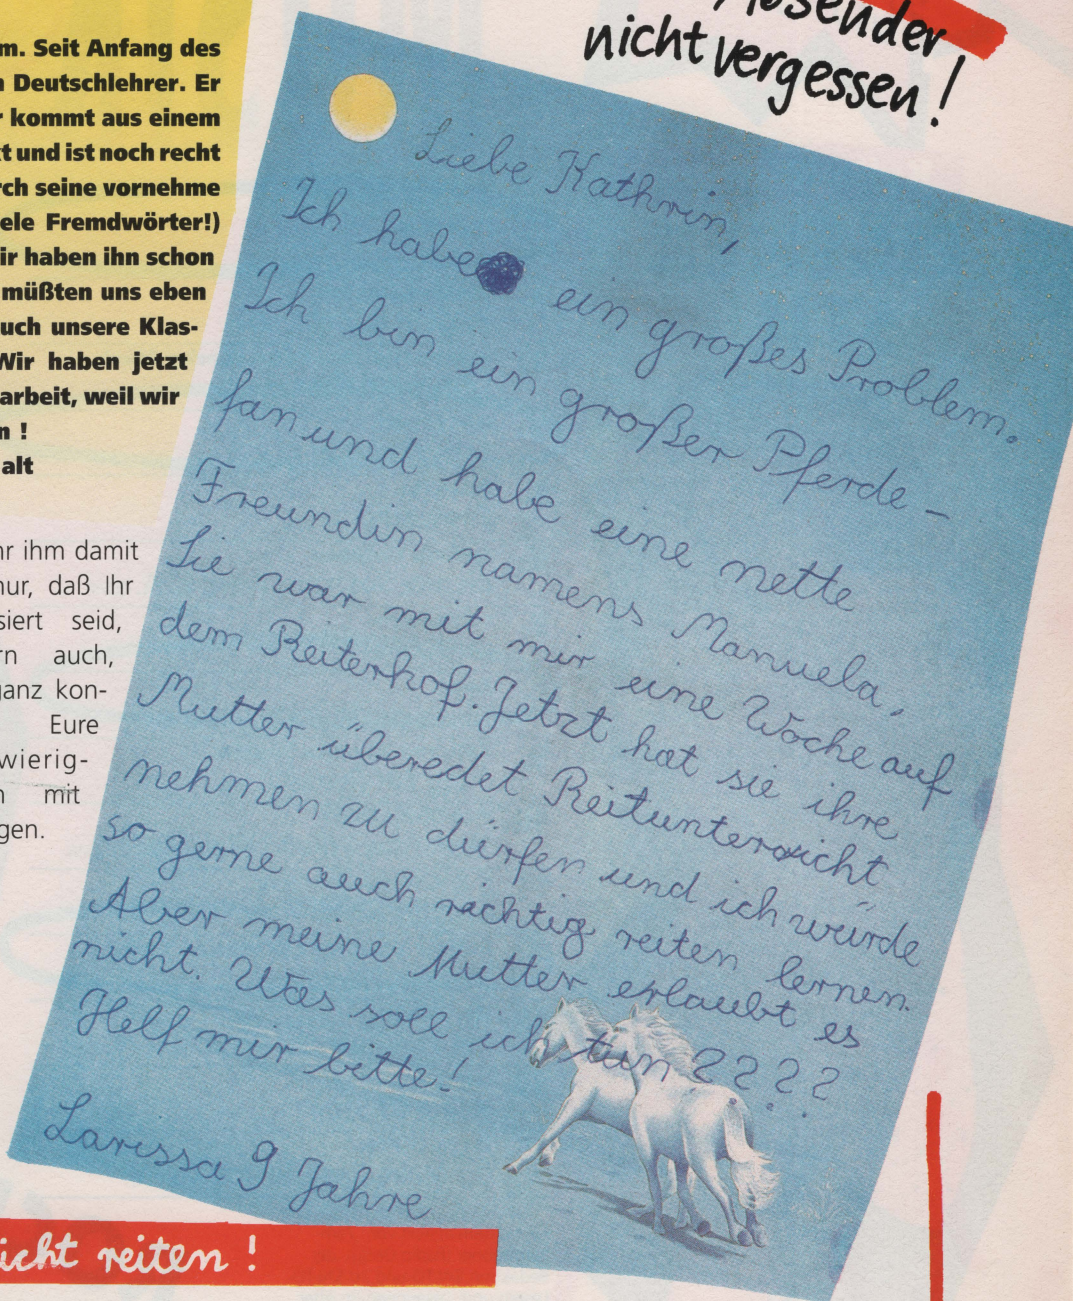 m. Seit Anfang des
Deutschlehrer. Er
kommt aus einem
t und ist noch recht
rch seine vornehme
ele Fremdwörter!)
ir haben ihn schon
müßten uns eben
uch unsere Klas-
Wir haben jetzt
arbeit, weil wir
n !
alt
hr ihm damit
nur, daß Ihr
siert seid,
rn auch,
ganz kon-
Eure
wierig-
n mit
gen.
Absender
nicht vergessen!
Liebe Kathrin,
Ich habe ein großes Problem.
Ich bin ein großer Pferde-
fan und habe eine nette
Freundin namens Manuela.
Sie war mit mir eine Woche auf
dem Reiterhof. Jetzt hat sie ihre
Mutter überedet Reitunterricht
nehmen zu dürfen und ich würde
so gerne auch richtig reiten lernen.
Aber meine Mutter erlaubt es
nicht. Was soll ich tun????
Helf mir bitte!
Larissa 9 Jahre
icht reiten!